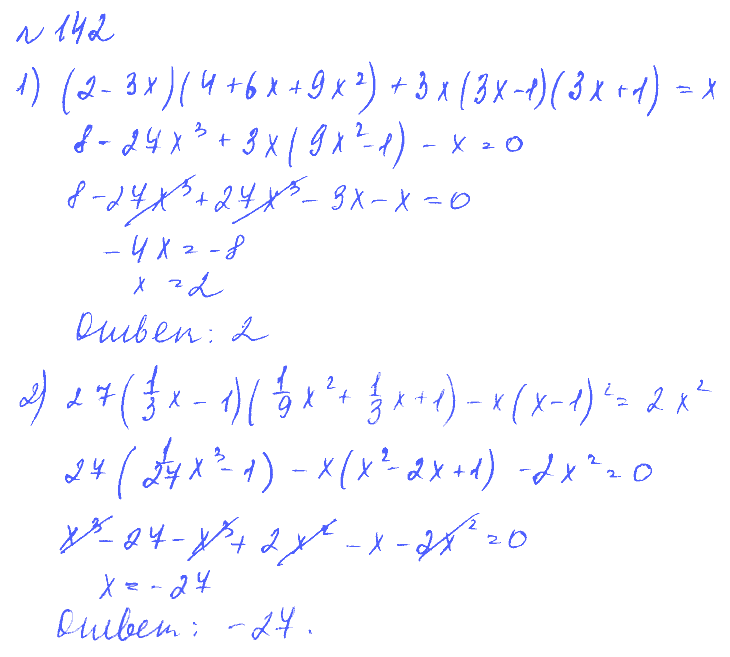 № 142
1) (2 - 3x)(4 + 6x + 9x²) + 3x(3x - 1)(3x + 1) = x
8 - 27x³ + 3x(9x² - 1) - x = 0
8 - 27x³ + 27x³ - 3x - x = 0
- 4x = -8
x = 2
Ответ: 2
2) 27(1/3 x - 1)(1/9 x² + 1/3 x + 1) - x(x - 1)² = 2x²
27(1/27 x³ - 1) - x(x² - 2x + 1) - 2x² = 0
x³ - 27 - x³ + 2x² - x - 2x² = 0
x = - 27
Ответ: - 27.